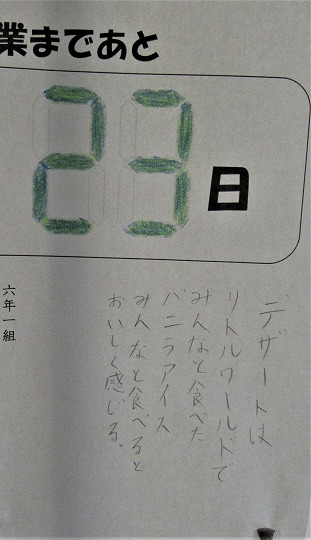 業まであと
23日
デザートは
リトルワールドで
みんなと食べた
バニラアイス
みんなと食べると
おいしく感じる。
六年一組